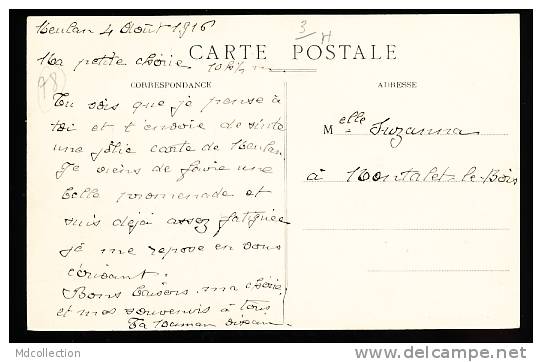 Meulan 4 Août 1916
3
H
CARTE POSTALE
Ma petite chérie 10 h ½ m
CORRESPONDANCE
ADRESSE
(98)
Tu vois que je pense à
toi et t'envoie de suite
une jolie carte de Meulan.
Je viens de faire une
belle promenade et
suis déjà assez fatiguée
je me repose en vous
écrivant.
Bons baisers ma chérie,
et mes souvenirs à tous
Ta Maman
Melle Suzanna
à Montalet-le-Bois
Mdcollection
delcampe.net